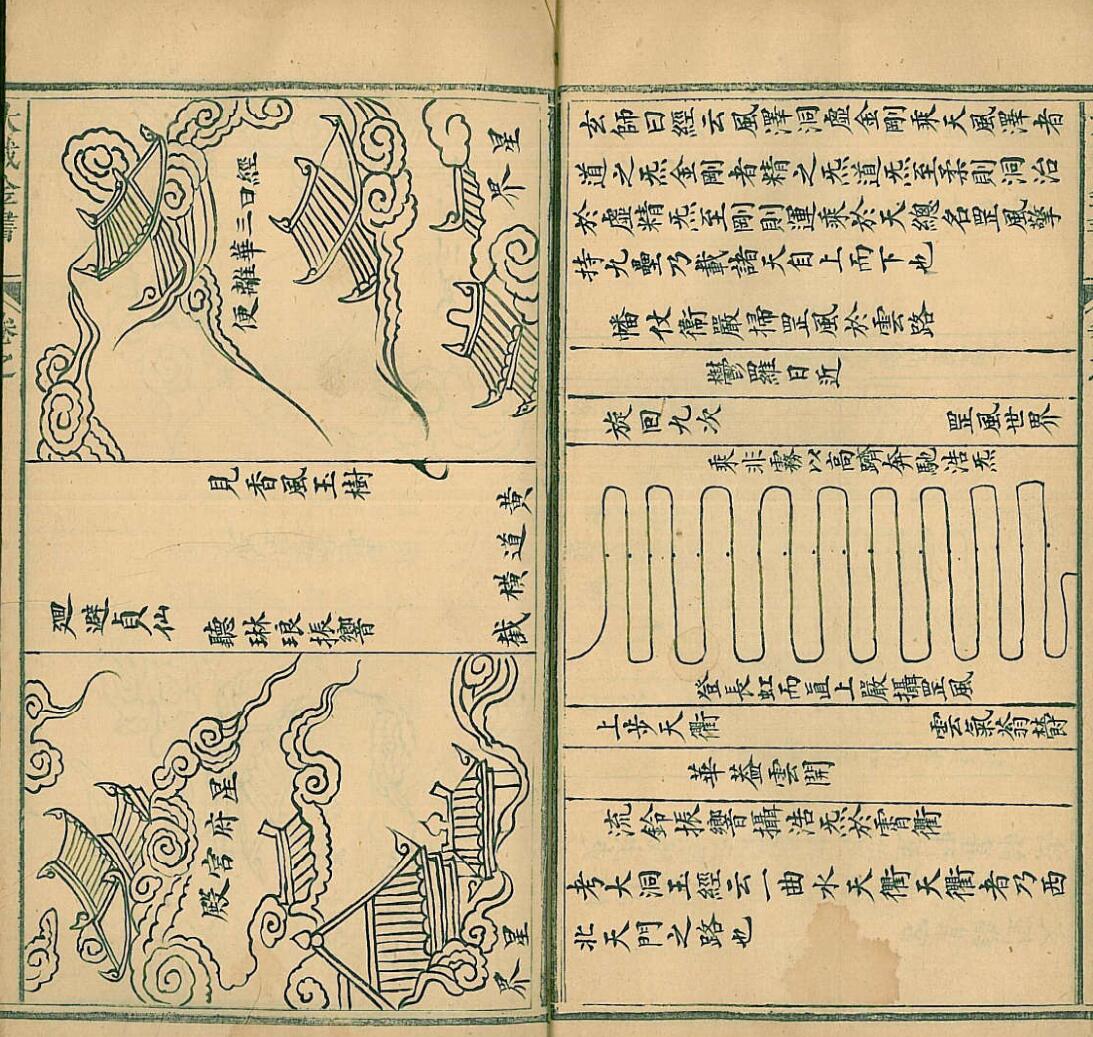 玄師曰經云風澤洞虛金剛乘天風澤者
道之炁金剛者精之炁道炁至柔則洞治
於虛精炁至剛則運乘於天總名罡風擎
持九壘乃載諸天自上而下也
幡仗衛嚴掃罡風於雲路
鬱羅日近
旋回九次
罡風世界
乘非霧以高躋奔馳浩炁
登長虹而直上嚴攝罡風
上步天衢
雲氣蓊欝
華蓋雲開
流鈴振響攝浩炁於霄衢
考大洞玉經云一曲水天衢天衢者乃西
北天門之路也
星界
經曰三華離便
黃道橫截
見香風玉樹
聽琳琅振響
廻避貞仙
星府宮殿
星界